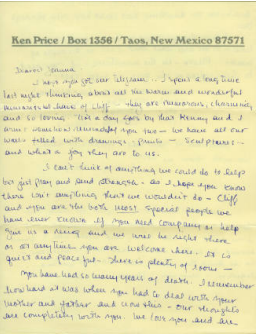 Ken Price / Box 1356 / Taos, New Mexico 87571
Dearest
I hope you got our telegram. I spent a long time
last night thinking about all the warm and wonderful
memories I have of Cliff - they are humorous, charming
and so loving. Not a day goes by that Kenny and I
aren't somehow reminded of you two - we have all our
walls filled with drawings, prints - sculptures -
and what a joy they are to us.
I can't think of anything we could do to help
but just pray and send strength - as I hope you know
there isn't anything that we wouldn't do - Cliff
and you are the both most special people we
have ever known. If you need company or help
give us a ring and we will be right there
or at any time you are welcome here. It is
quiet and peaceful. There is plenty of room -
You have had so many years of death. I remember
how hard it was when you had to deal with your
mother and father and now this - Our thoughts
are completely with you. We love you and are